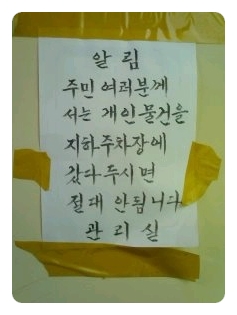 알림
주민 여러분께
서는 개인물건을
지하주차장에
갔다두시면
절대 안됩니다
관리실